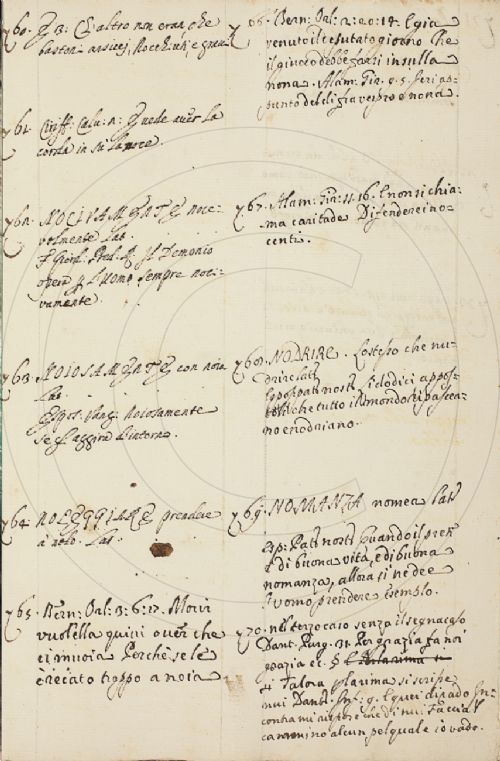 760. E 3: E altro non eran che
baston- arsicci, Rocchi, vti, e
761. Ciriff: Calu: Vuole auer la
corda in su la noce.
762. NOCIVAMENTE noce-
volmente Lat.
F. Giord. Pred. R. Jl Demonio
opera p. l'uomo sempre noci-
vamente.
763. NOIOSAMENTE con noia
Lat.
Espos. Vang. Noiosamente
se l'aggira d'intorno.
764. NOLEGGIARE prendere
à nolo. Lat.
765. Bern: Orl: 3: 6: Mori
vuol ella quiui ouer che
ei muoia Perche se le
è recato troppo a noia
766. Bern: Orl: 2: 20: 14. E gia
venuto il giorno Che
il giuoco debbe farsi in sulla
nona. Alam: Gir. 9. 5. feri ap-
punto del di fra vespro e nona.
767. Alam: Gir: 11. 16. E non si chia-
ma caritade Difendere inno-
centi.
768. NODRIRE. Lo stesso che nu-
drire Lat.
Espos: Pat: nost: Si lo dici appos-
toli che tutto il mondo pascea-
no e nodriano.
769. NOMANZA nomea Lat.
Esp: Pat: nost: Quando il pren
è di buona vita, e di buona
nomanza, allora si ne dee
l'uomo prendere esemplo.
770. nel terzo caso senza il segnacaso
Dant. Purg. 31. Per grazia fa noi
grazia ec. §
Talora p la rima si scriße
nui Dant: Inf: 9. E quei di rado In-
contra mi rispose che di nui. Faccia il
cammino alcun pel quale io vado.